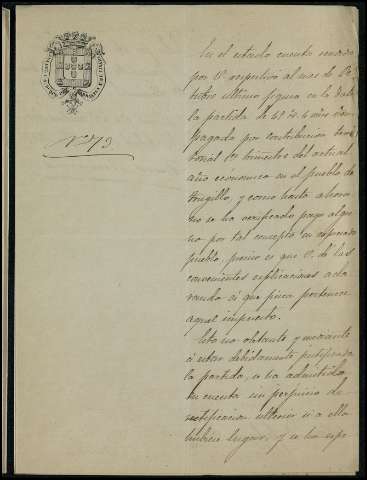 Nº 79.
En el estado cuenta rendido
por V. respectivo al mes de Oc-
tubre ultimo figura en la data
la partida de
pagada por contribucion terri-
torial 1er trimestre del actual
año economico en el pueblo de
Trugillo, y como hasta ahora
no se ha verificado pago algu-
no por tal concepto en
pueblo, preciso es que V. dé las
convenientes esplicaciones acla-
rando á que finca pertenece
aquel impuesto.
Esto no obstante y mediante
á estar debidamente justificada
la partida, se ha admitido
en cuenta sin perjuicio de
rectificacion ulterior si á ella
hubiere lugar; y se ha